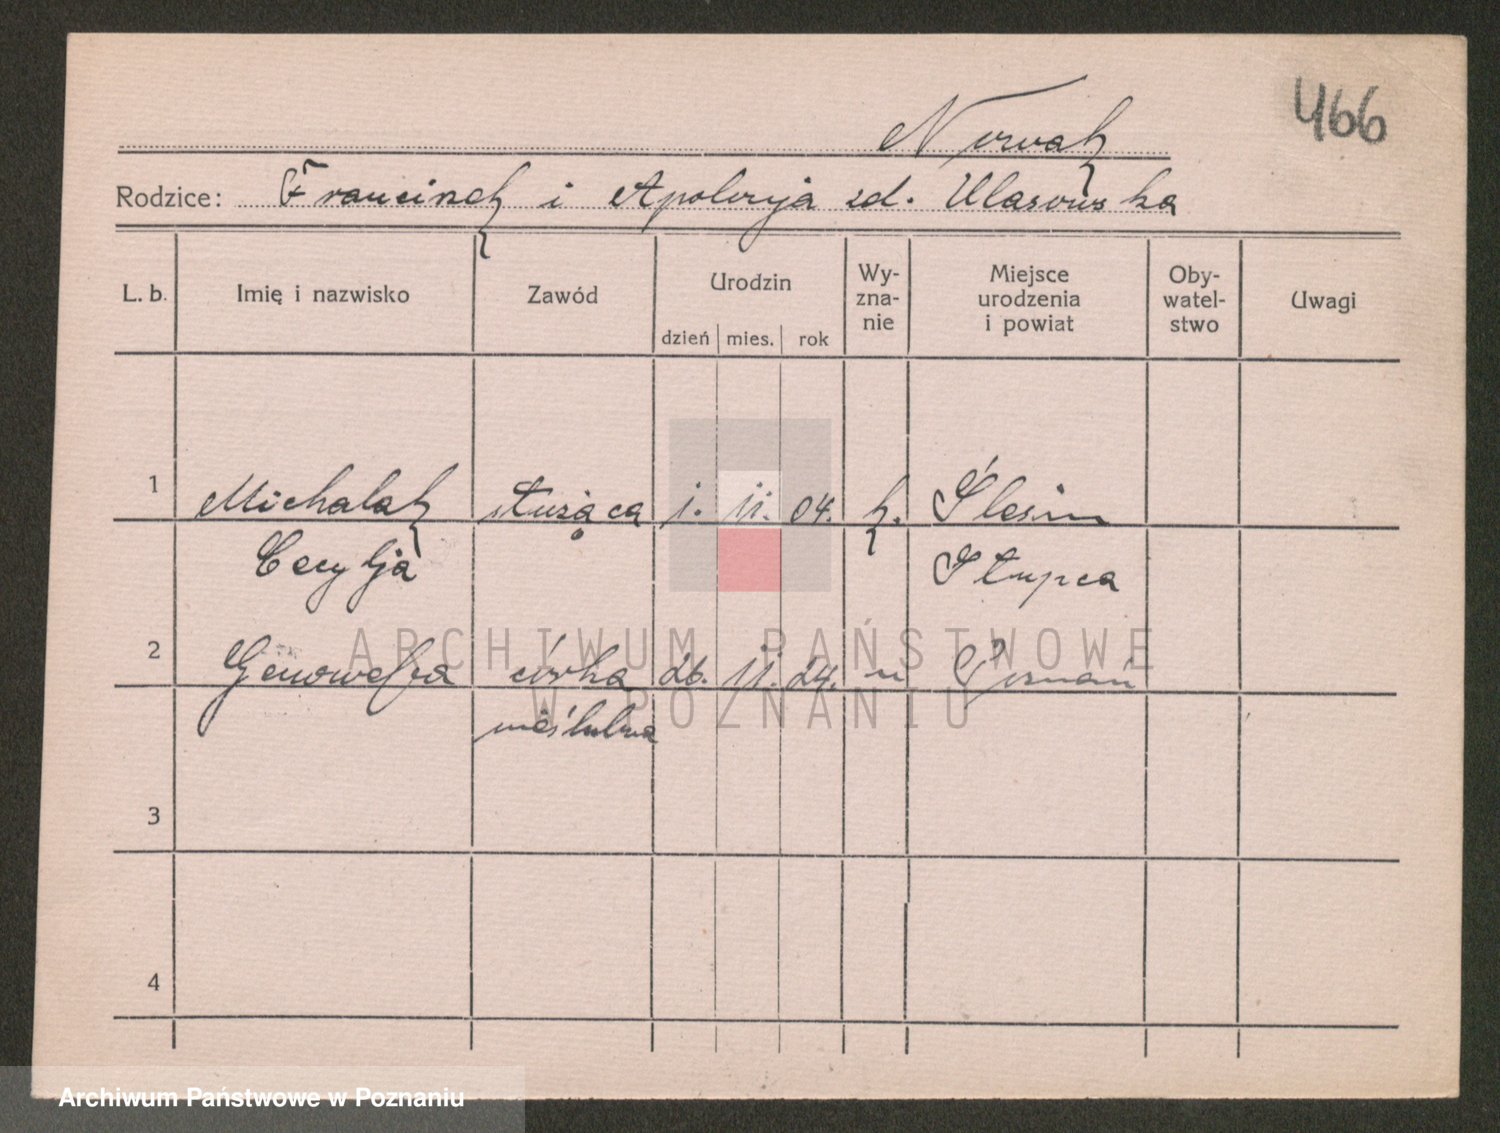 466
Nowak
Rodzice: Franciszek i Apolonja zd. Ulasowska
L. b. Imię i nazwisko Zawód Urodzin dzień mies. rok Wy-zna-nie Miejsce urodzenia i powiat Oby-watel-stwo Uwagi
1 Michalak służąca 1. 11. 04. k. Ślesin
Cecylja Słupca
2 Genowefa córka 26. 11. 24. " Poznań
nieślubna
3
4
ARCHIWUM PAŃSTWOWE
W POZNANIU
Archiwum Państwowe w Poznaniu